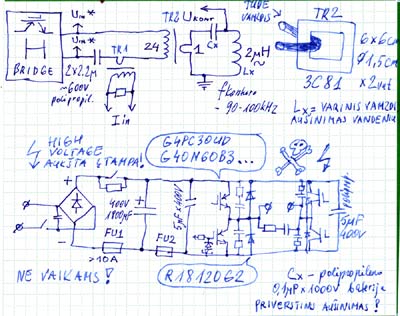 Uin*
Uin*
BRIDGE
2x2.2µ
~600V
polipropil.
TR1
I in
24
TR2
Ukont
1
Cx
2µH
Lx
fkontūro
~90-100kHz
TR2
6x6cm
Ø1,5cm
3C81 x2vnt
Lx = VARINIS VAMZD.
AUŠINIMAS VANDENIU
HIGH
VOLTAGE
AUKŠTA ĮTAMPA!
G4PC30UD
G40N60B3...
+
400V
1800µF
5µF x 400V
5µF
400V
–
FU1
>10A
FU2
NE VAIKAMS!
R1812062
Cx – polipropileno
0,1µF x 1000V baterija
PRIVERSTINIS AUŠINIMAS!